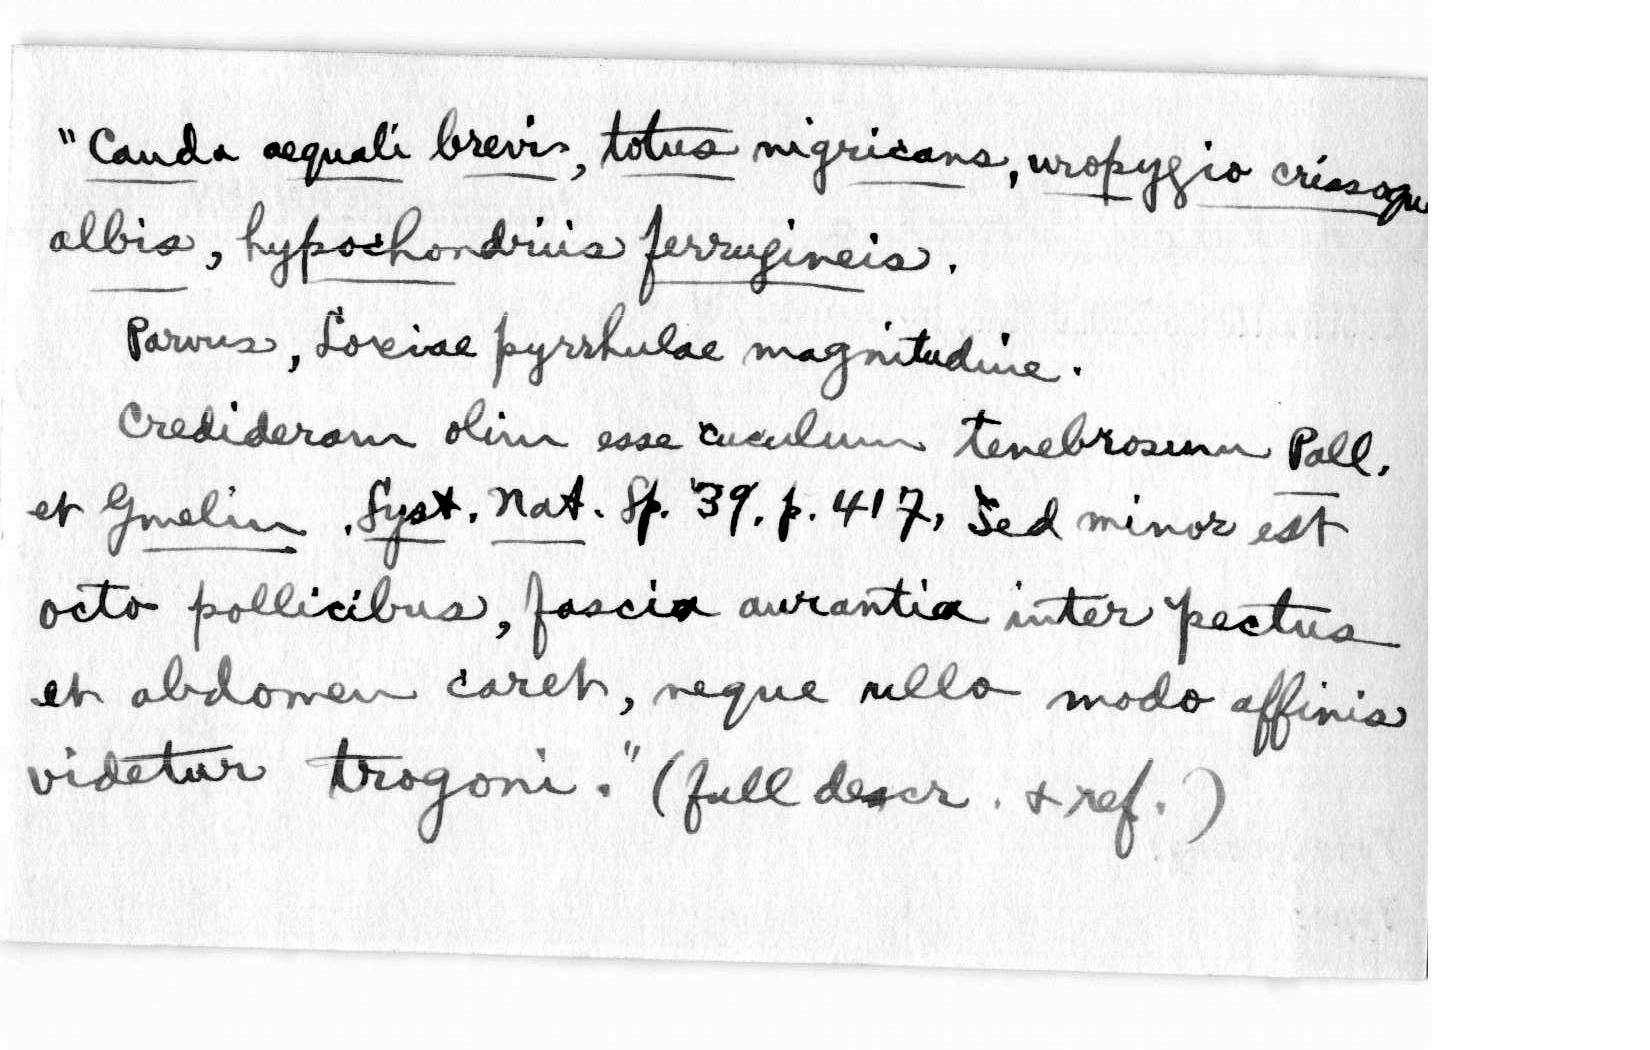 "Cauda aequali brevis, totus nigricans, uropygio crissoque
albis, hypochondriis ferrugineis.
Parvus, Loxiae pyrrhulae magnitudine.
Credideram olim esse cuculum tenebrosum Pall.
et Gmelin. Syst. Nat. Sp. 39. p. 417, Sed minor est
octo pollicibus, fascia aurantia inter pectus
et abdomen caret, neque ullo modo affinis
videtur trogoni." (full descr. & ref.)